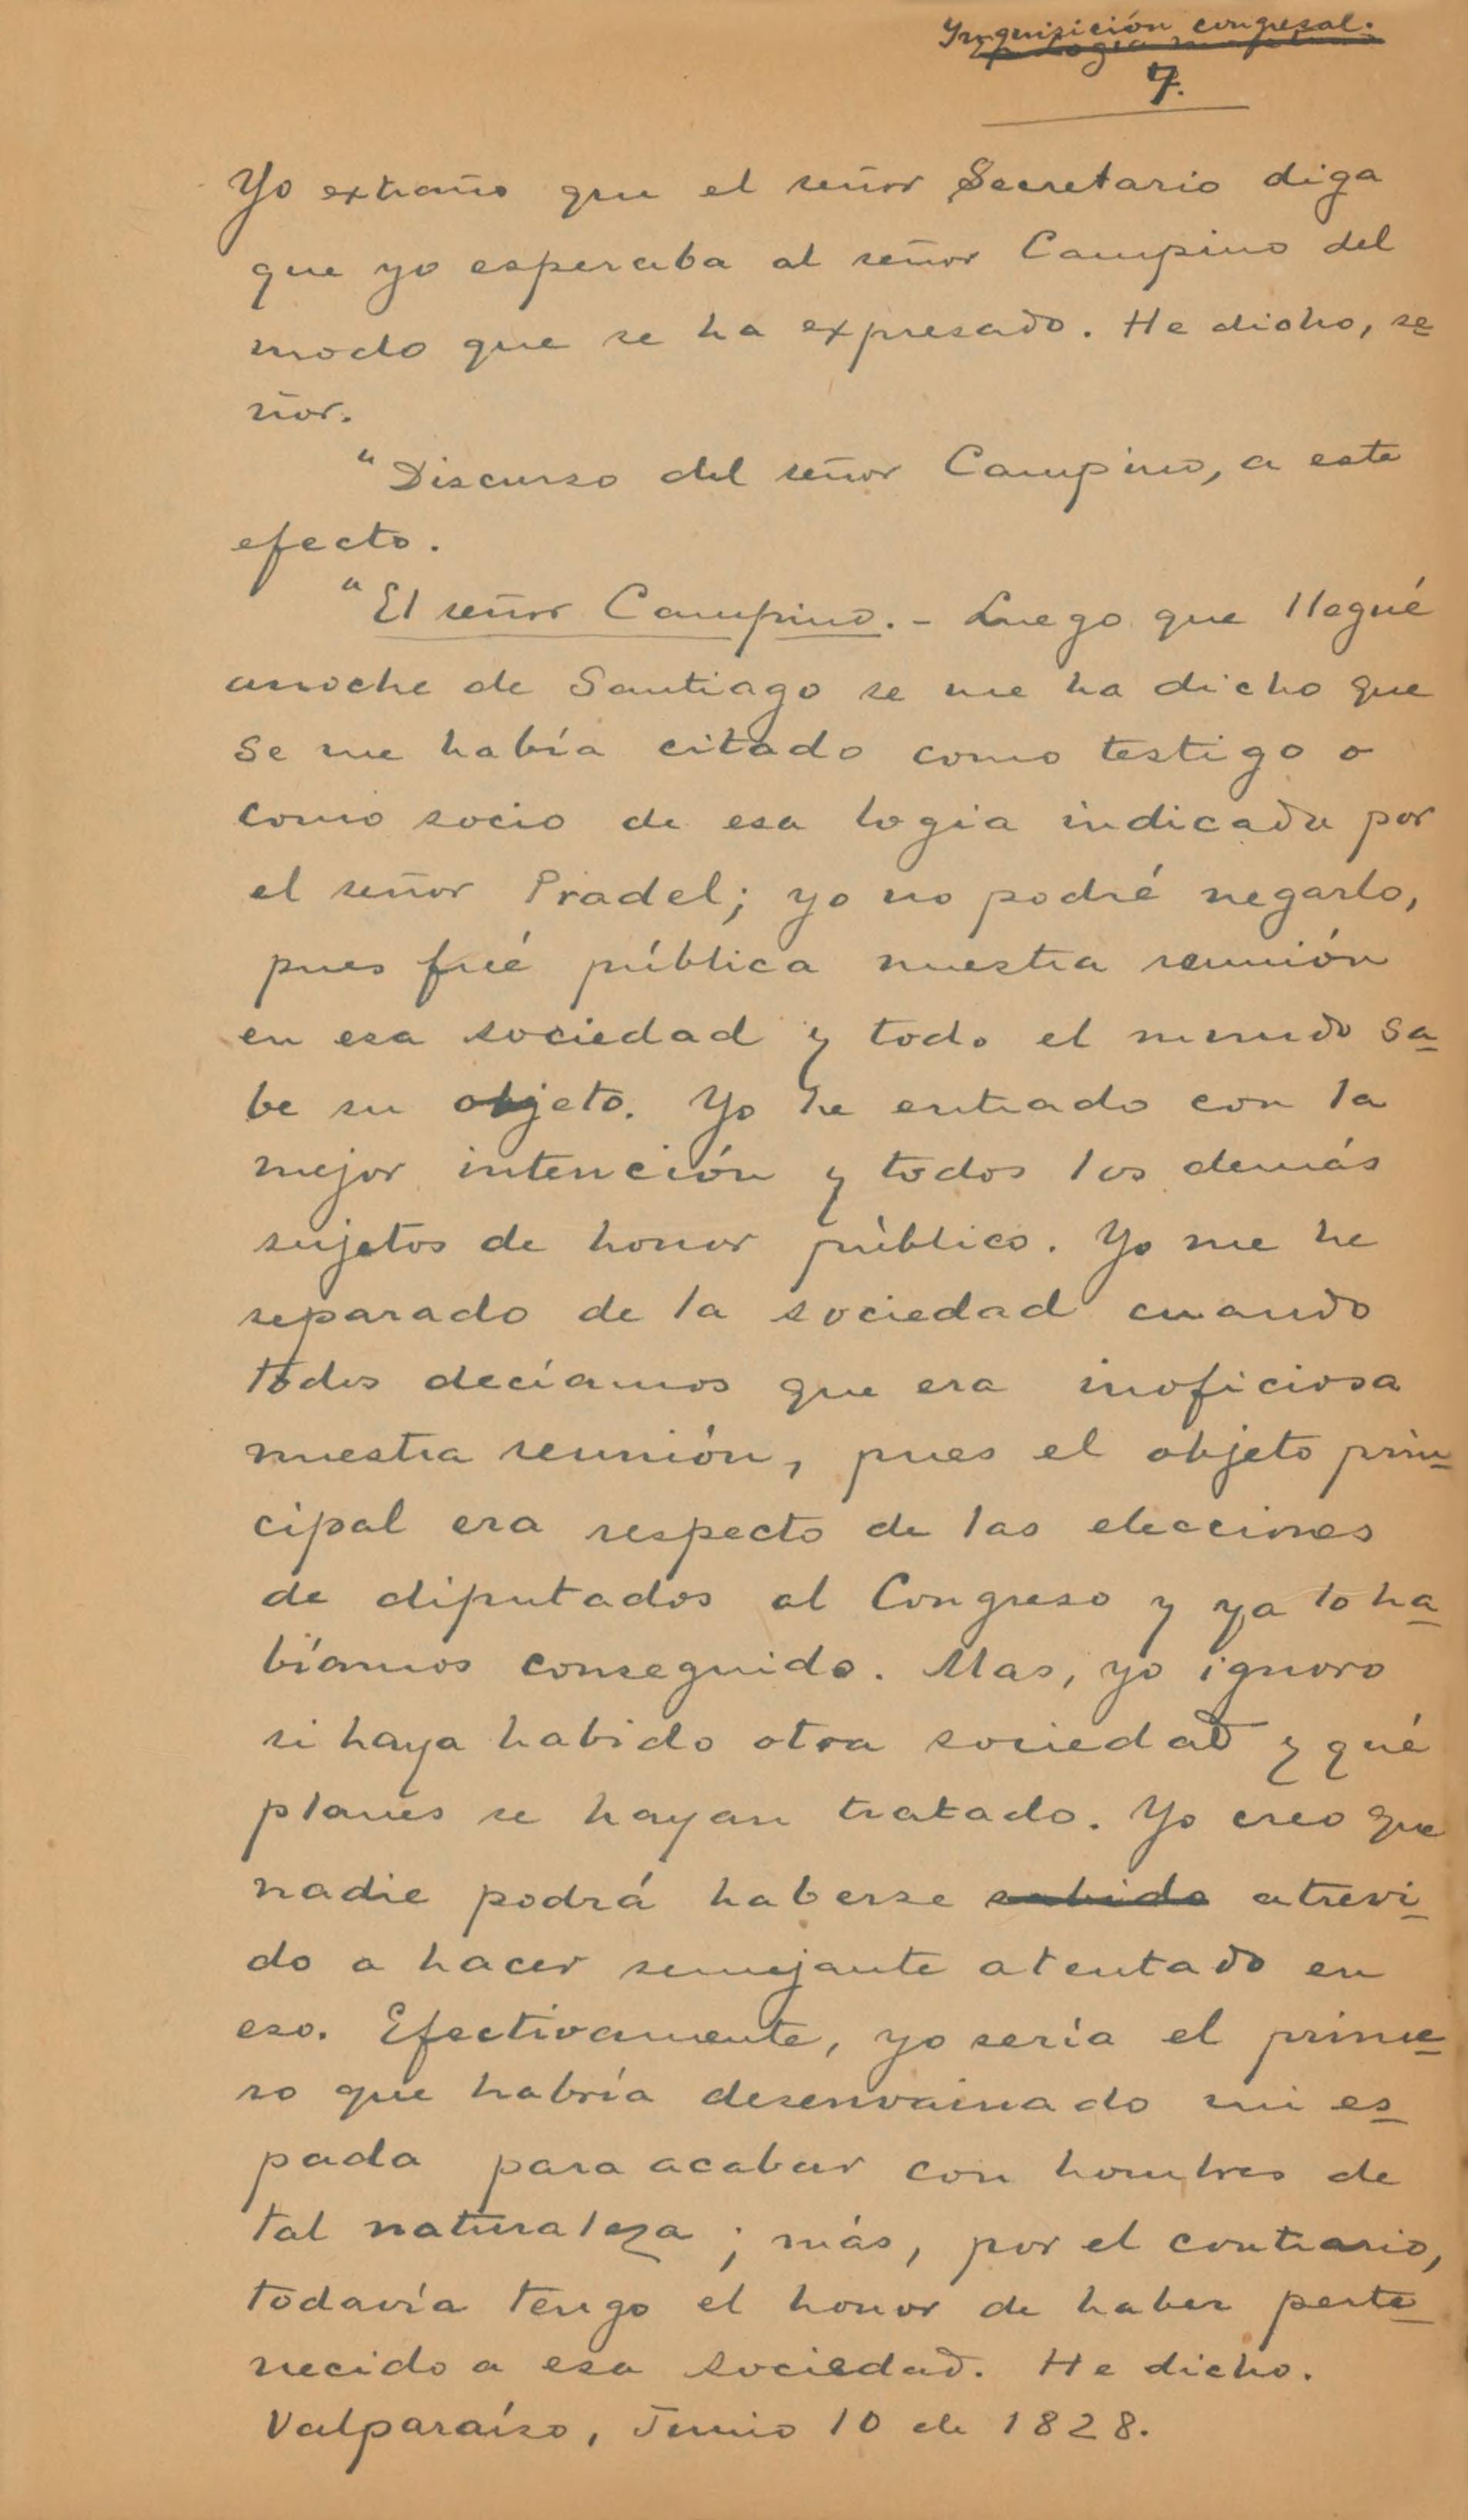 Inquisición congresal.
7.
Yo extraño que el señor Secretario diga
que yo esperaba al señor Campino del
modo que se ha expresado. He dicho, se
ñor.
"Discurso del señor Campino, a este
efecto.
"El señor Campino. - Luego que llegué
anoche de Santiago se me ha dicho que
se me había citado como testigo o
como socio de esa logia indicada por
el señor Pradel; yo no podré negarlo,
pues fué pública nuestra reunión
en esa sociedad y todo el mundo sa
be su objeto. Yo he entrado con la
mejor intención y todos los demás
sujetos de honor público. Yo me he
separado de la sociedad cuando
todos decíamos que era inoficiosa
nuestra reunión, pues el objeto prin
cipal era respecto de las elecciones
de diputados al Congreso y ya lo ha
bíamos conseguido. Mas, yo ignoro
si haya habido otra sociedad y qué
planes se hayan tratado. Yo creo que
nadie podrá haberse sabido atrevi
do a hacer semejante atentado en
eso. Efectivamente, yo sería el prime
ro que habría desenvainado mi es
pada para acabar con hombres de
tal naturaleza; más, por el contrario,
todavía tengo el honor de haber perte
necido a esa sociedad. He dicho.
Valparaíso, Junio 10 de 1828.